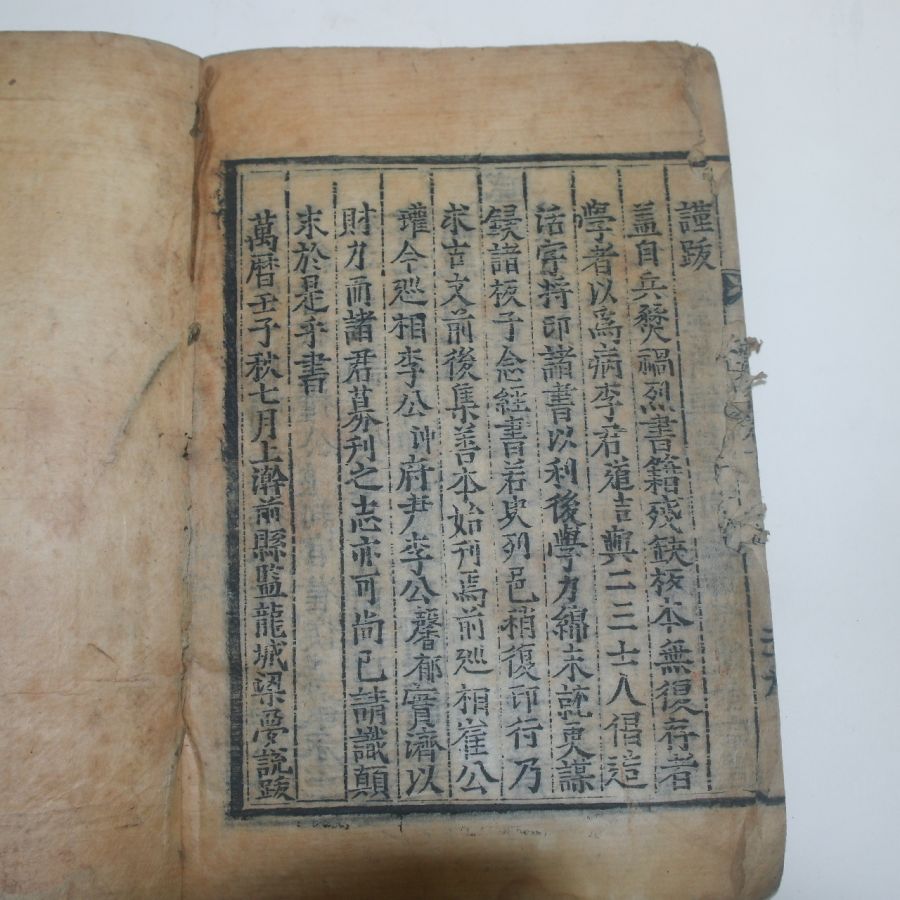 謹跋
盖自兵燹禍烈書籍殘缺板本無復存者
學者以爲病李君蓂吉與二三士人倡造
活字将印諸書以利後學力綿未就更謀
鋟諸板子念經書若史列邑稍復印行乃
求古文前後集善本始刊焉前廵相崔公
瓘今廵相李公冲府尹李公馨郁實濟以
財力而諸君募刋之志亦可尚已請識顛
末於是乎書
萬曆壬子秋七月上澣前縣監龍城梁夢說跋